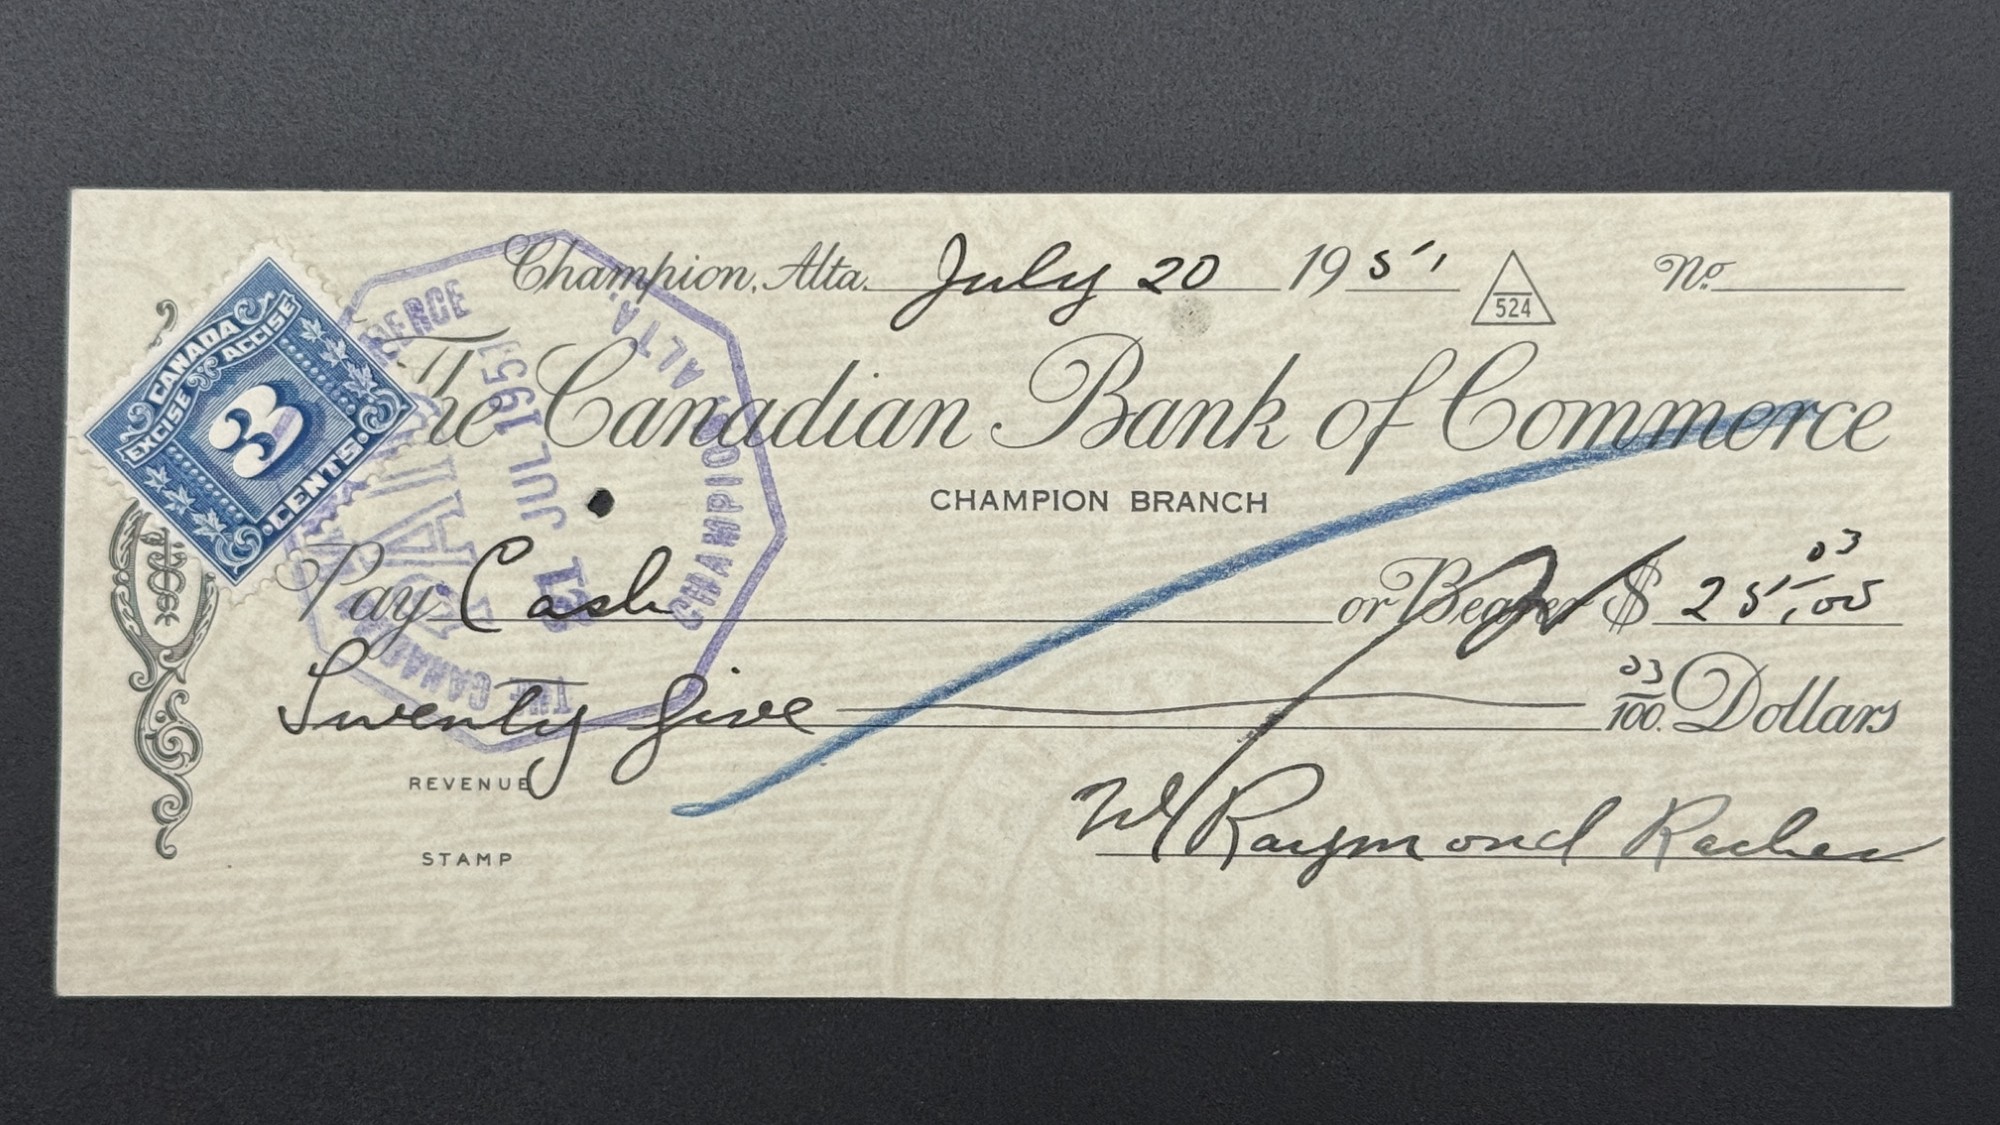 Champion, Alta. July 20 1951 524 No.
CANADA
EXCISE ACCISE
3
CENTS
The Canadian Bank of Commerce
CHAMPION BRANCH
PAID
21 JUL 1951
CHAMPION, ALTA.
03
Pay Cash or Bearer $ 25.00
Twenty five 03/100 Dollars
REVENUE
STAMP
Raymond